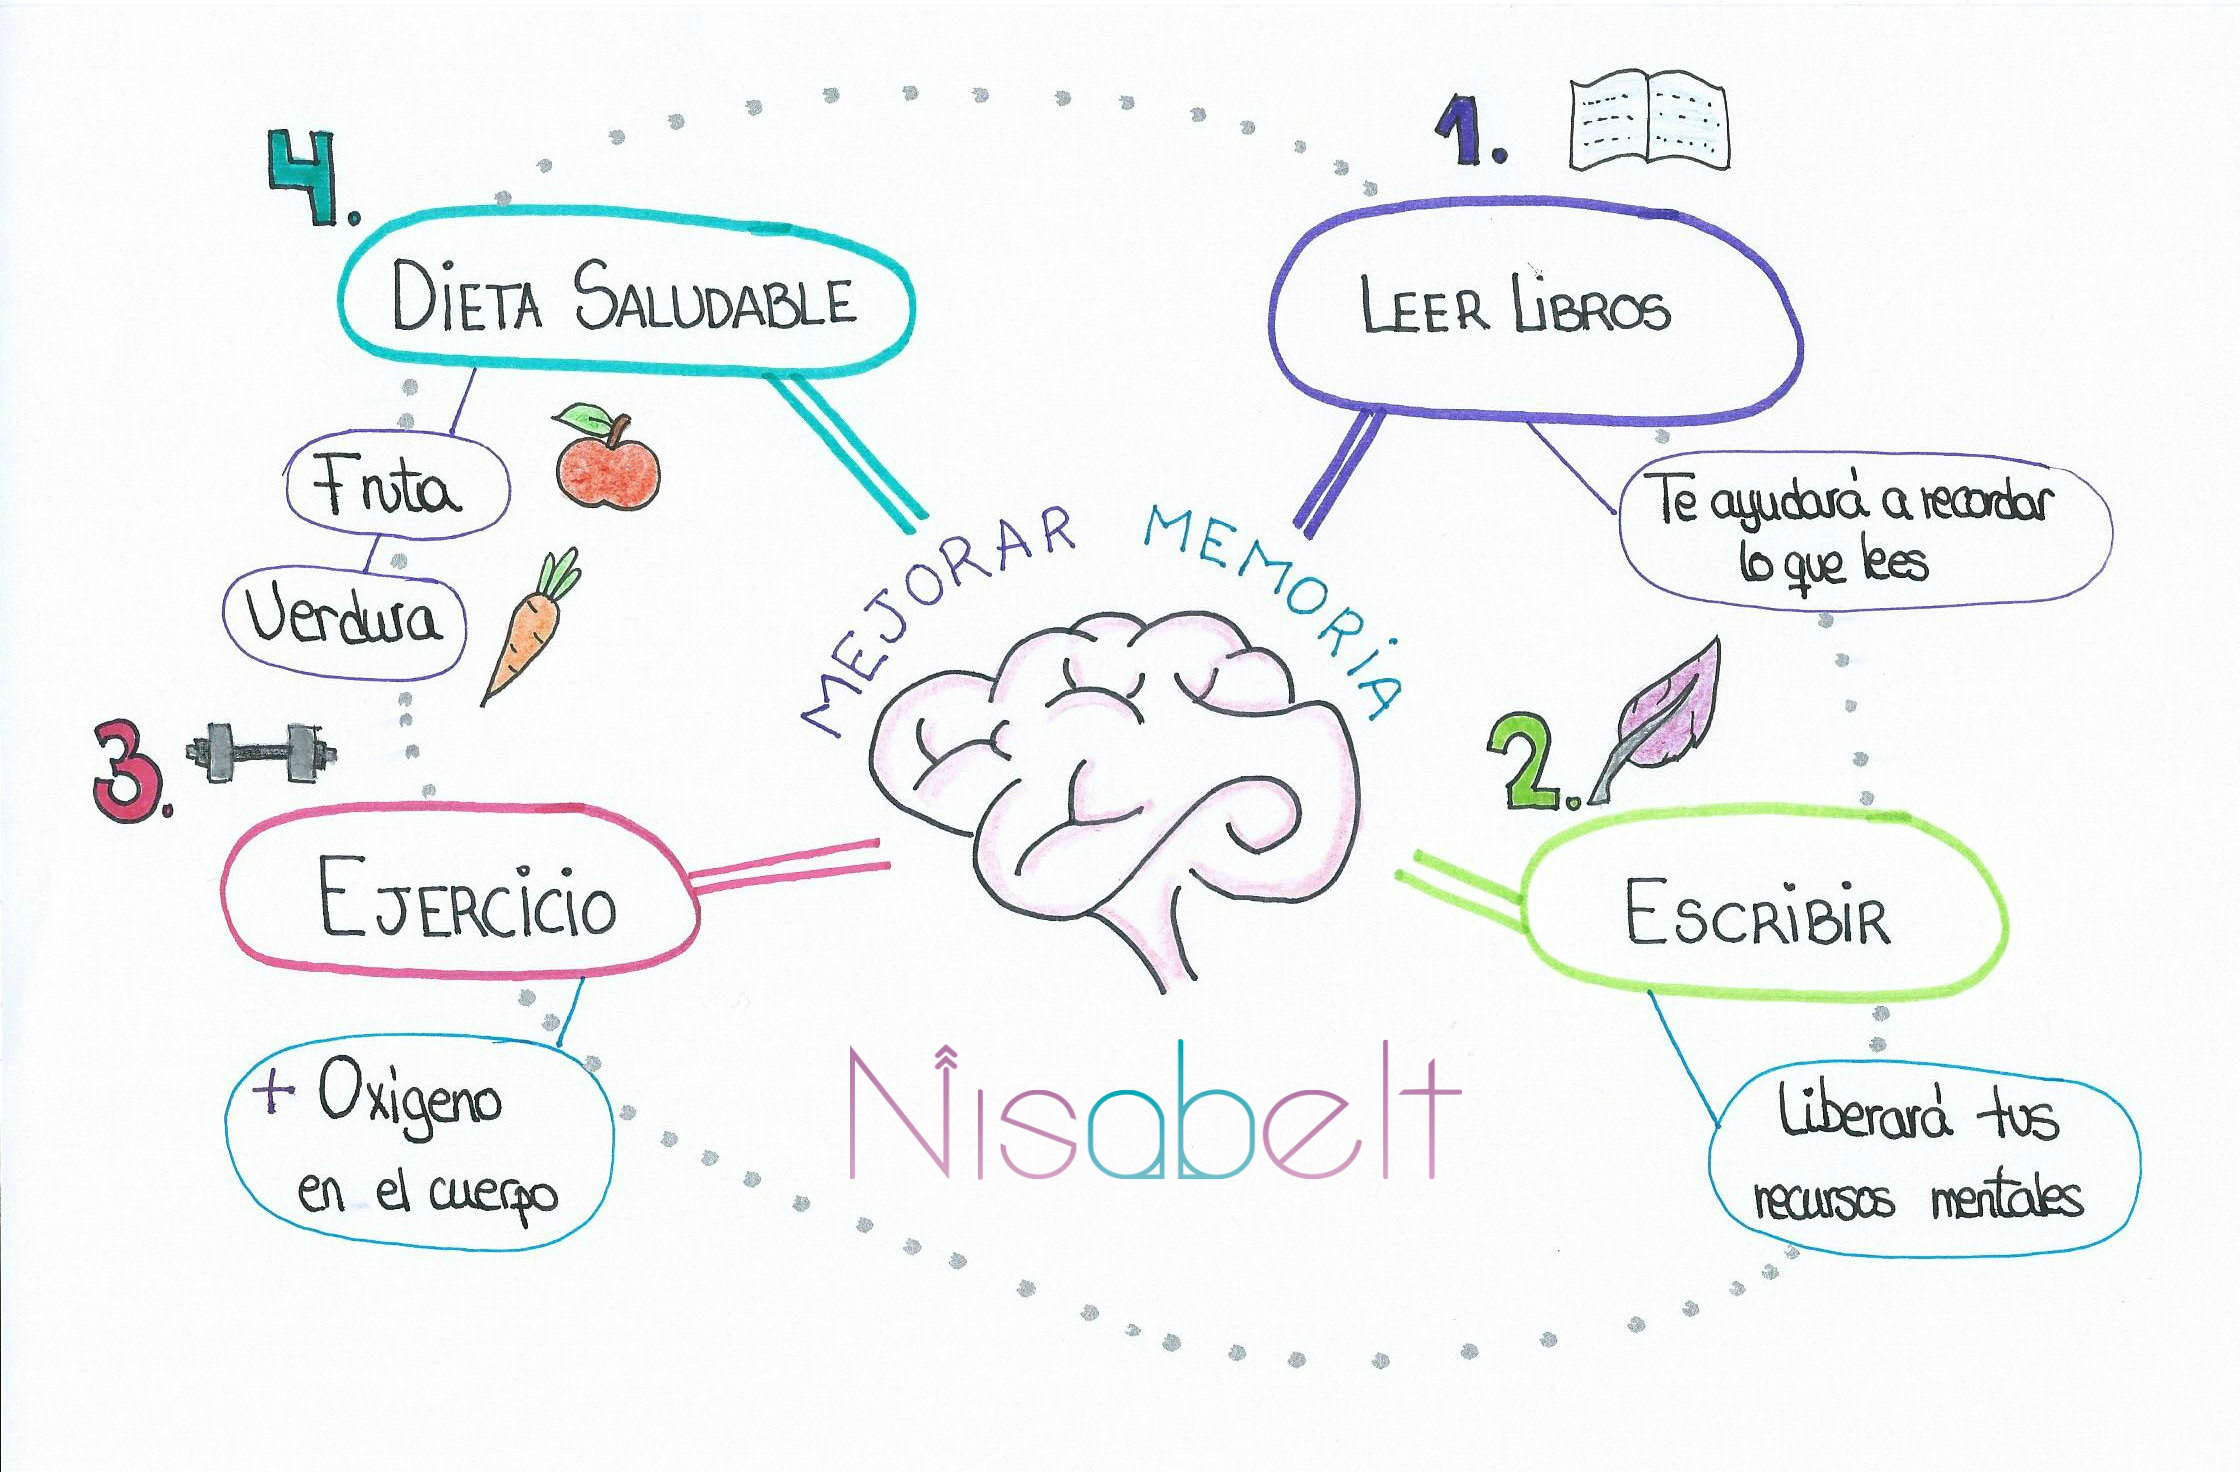 MEJORAR MEMORIA
1.
LEER LIBROS
Te ayudará a recordar
lo que lees
2.
ESCRIBIR
Liberará tus
recursos mentales
3.
EJERCICIO
+ Oxigeno
en el cuerpo
4.
DIETA SALUDABLE
Fruta
Verdura
Nisabelt